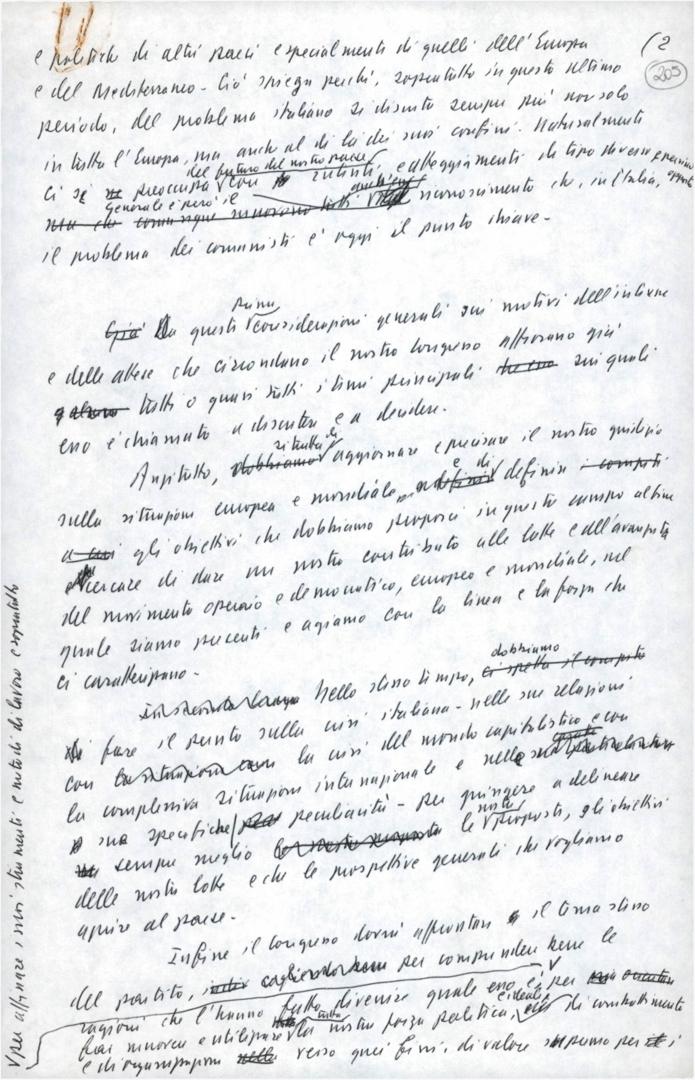 (2
205
e politiche di altri paesi e specialmente di quelli dell'Europa
e del Mediterraneo - Ciò spiega perché, soprattutto in questo ultimo
periodo, del problema italiano si discute sempre più non solo
in tutta l'Europa, ma anche al di là dei suoi confini. Naturalmente
del futuro del nostro paese
ci si preoccupa con intenti e atteggiamenti di tipo diverso e persino opposti
Generale è però il
riconoscimento che, in Italia,
il problema dei comunisti è oggi il punto chiave -
prime
Già Da queste considerazioni generali sui motivi dell'interesse
e delle attese che circondano il nostro Congresso affiorano già
tutti o quasi tutti i temi principali che esso sui quali
esso è chiamato a discutere e a decidere.
si tratta di
Anzitutto, dobbiamo aggiornare e precisare il nostro giudizio
e di
sulla situazione europea e mondiale, definire i compiti
gli obiettivi che dobbiamo proporci in questo campo al fine
cercare di dare un nostro contributo alle lotte e all'avanzata
del movimento operaio e democratico, europeo e mondiale, nel
quale siamo presenti e agiamo con la linea e la forza che
ci caratterizzano -
dobbiamo
In secondo luogo Nello stesso tempo, ci spetta il compito
fare il punto sulla crisi italiana - nelle sue relazioni
con la situazione con la crisi del mondo capitalistico e con
la complessiva situazione internazionale e nelle
sue specifiche peculiarità - per giungere a delineare
nostre
sempre meglio le proposte, gli obiettivi
delle nostre lotte e che le prospettive generali che vogliamo
aprire al paese -
Infine il Congresso dovrà affrontare il tema stesso
del partito, cogliendo bene per comprendere bene le
ragioni che l'hanno fatto divenire quale esso è, per
tutta e ideale
far muovere e utilizzare la nostra forza politica, di combattimento
e di organizzazione nella verso quei fini, di valore supremo per i
per affinare i suoi strumenti e metodi di lavoro e soprattutto